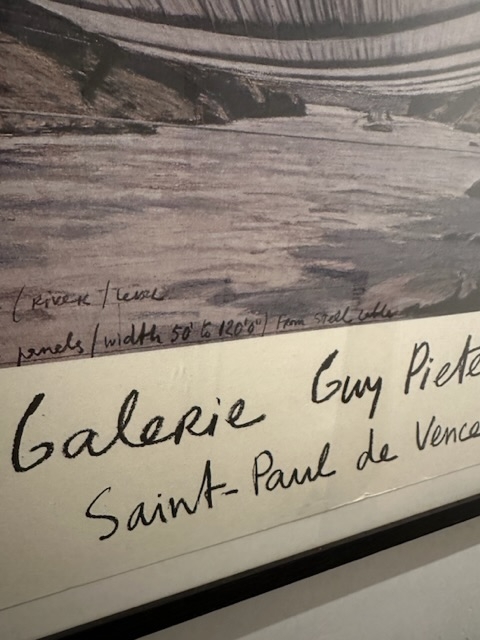 (River / level
panels / width 50' to 120'0") From steel cable
Galerie Guy Piete
Saint-Paul de Vence